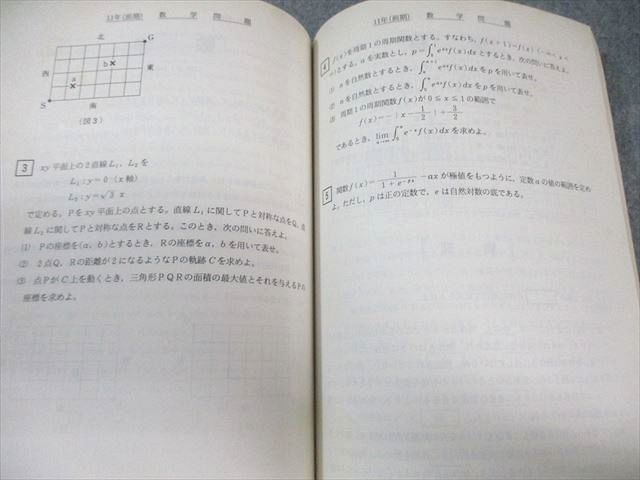 11年(前期) 数学問題
北
G
b
西
東
a
S
南
(図3)
3 xy平面上の2直線L₁, L₂を
L₁ : y=0 (x軸)
L₂ : y=√3 x
で定める。Pをxy平面上の点とする。直線L₁に関してPと対称な点をQ, 直
線L₂に関してPと対称な点をRとする。このとき, 次の問いに答えよ。
(1) Pの座標を(a, b)とするとき, Rの座標をa, bを用いて表せ。
(2) 2点Q, Rの距離が2になるようなPの軌跡Cを求めよ。
(3) 点PがC上を動くとき, 三角形PQRの面積の最大値とそれを与えるPの
座標を求めよ。
11年(前期) 数学問題
4 f(x)を周期1の周期関数とする。すなわち, f(x+1)=f(x) (-∞<x<
∞)とする。aを実数とし, p=∫₀¹e^{ax}f(x)dxとするとき, 次の問いに答えよ。
(1) nを自然数とするとき,
(2) nを自然数とするとき, ∫₀ⁿe^{ax}f(x)dxをpを用いて表せ。
(3) 周期1の周期関数f(x)が0≦x≦1の範囲で
f(x)=-|x-1/2|+3/2
であるとき, lim_{n→∞}∫₀ⁿe^{-x}f(x)dxを求めよ。
5 関数f(x)=1/(1+e^{-px})-axが極値をもつように, 定数aの値の範囲を定め
よ。ただし, pは正の定数で, eは自然対数の底である。